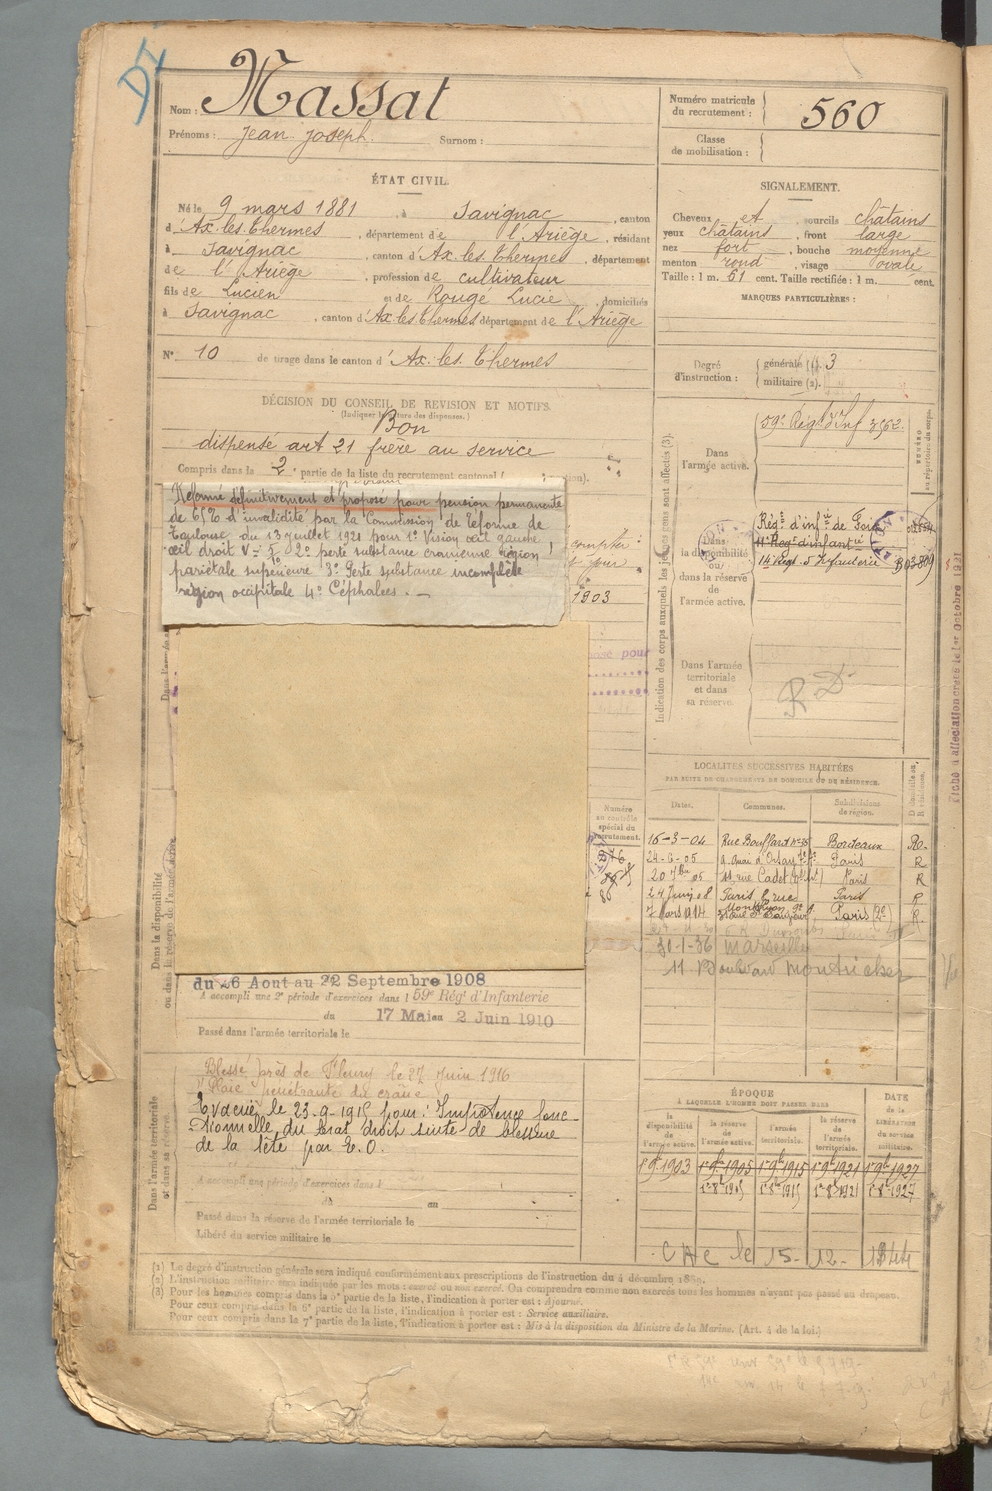 DI
Nom : Massat
Prénoms : Jean Joseph Surnom :
Numéro matricule du recrutement : 560
Classe de mobilisation :
ÉTAT CIVIL.
Né le 9 mars 1881, à Savignac, canton
d'Ax-les-Thermes, département de l'Ariège, résidant
à Savignac, canton d'Ax-les-Thermes, département
de l'Ariège, profession de cultivateur
fils de Lucien et de Rouge Lucie, domiciliés
à Savignac, canton d'Ax-les-Thermes département de l'Ariège
N° 10 de tirage dans le canton d'Ax-les-Thermes
SIGNALEMENT.
Cheveux et, sourcils châtains
yeux châtains, front large
nez fort, bouche moyenne
menton rond, visage ovale
Taille : 1 m. 61 cent. Taille rectifiée : 1 m. cent.
MARQUES PARTICULIÈRES :
Degré d'instruction : générale (1). 3
militaire (2).
DÉCISION DU CONSEIL DE REVISION ET MOTIFS.
Bon
dispensé art 21 frère au service
Compris dans la 2e partie de la liste du recrutement cantonal
Réformé définitivement et proposé pour pension permanente
de 65% d'invalidité par la Commission de réforme de
Toulouse du 13 juillet 1921 pour 1° Vision œil gauche
œil droit V = 5/10 2° perte substance cranienne région
pariétale supérieure 3° Perte substance incomplète
région occipitale 4° Céphalées. —
compter
1903
Indication des corps auxquels les jeunes gens sont affectés (3).
NUMÉRO au répertoire du corps.
Dans l'armée active.
59e Régt d'Inf 3562.
Dans la disponibilité ou dans la réserve de l'armée active.
Régt d'infie de Foix
14e Regt d'infanterie
Dans l'armée territoriale et dans sa réserve.
R D
Fiche d'affectation créée le 1er Octobre 1921
LOCALITÉS SUCCESSIVES HABITÉES
PAR SUITE DE CHANGEMENTS DE DOMICILE OU DE RÉSIDENCE.
Dates. Communes. Subdivisions de région.
16-3-04 Rue Bouffard n° 35 Bordeaux R.
24-6-05 9 Quai d'Orsay Paris R
20 7bre 05 rue Cadet Paris R
24 Juin 08 Paris Paris R
7 Mars 1914 Paris (2e) R.
30-1-36 Marseille
11 Boulevard Montricher
Numéro au contrôle spécial du recrutement.
du 26 Aout au 22 Septembre 1908
A accompli une 2e période d'exercices dans l 59e Régt d'Infanterie
du 17 Mai au 2 Juin 1910
Passé dans l'armée territoriale le
Dans la disponibilité ou dans la réserve de l'armée active.
Blessé près de Fleury le 27 juin 1916
Plaie pénétrante du crâne
Evacué le 23-9-1915 pour : Impotence fonc-
-tionnelle du bras droit suite de blessure
de la tête par E.O.
A accompli une période d'exercices dans l
du au
Passé dans la réserve de l'armée territoriale le
Libéré du service militaire le
Dans l'armée territoriale et dans sa réserve.
ÉPOQUE
À LAQUELLE L'HOMME DOIT PASSER DANS
la disponibilité de l'armée active. la réserve de l'armée active. l'armée territoriale. la réserve de l'armée territoriale.
DATE de la LIBÉRATION du service militaire.
1 9bre 1903 1 9bre 1905 1 9bre 1915 1 9bre 1921 1 9bre 1927
1er 8bre 1905 1er 8bre 1915 1er 8bre 1921 1er 8bre 1927
le 15-12-
(1) Le degré d'instruction générale sera indiqué conformément aux prescriptions de l'instruction du 4 décembre 1889.
(2) L'instruction militaire sera indiquée par les mots : exercé ou non exercé. On comprendra comme non exercés tous les hommes n'ayant pas passé au drapeau.
(3) Pour les hommes compris dans la 5e partie de la liste, l'indication à porter est : Ajourné.
Pour ceux compris dans la 6e partie de la liste, l'indication à porter est : Service auxiliaire.
Pour ceux compris dans la 7e partie de la liste, l'indication à porter est : Mis à la disposition du Ministre de la Marine. (Art. 4 de la loi.)